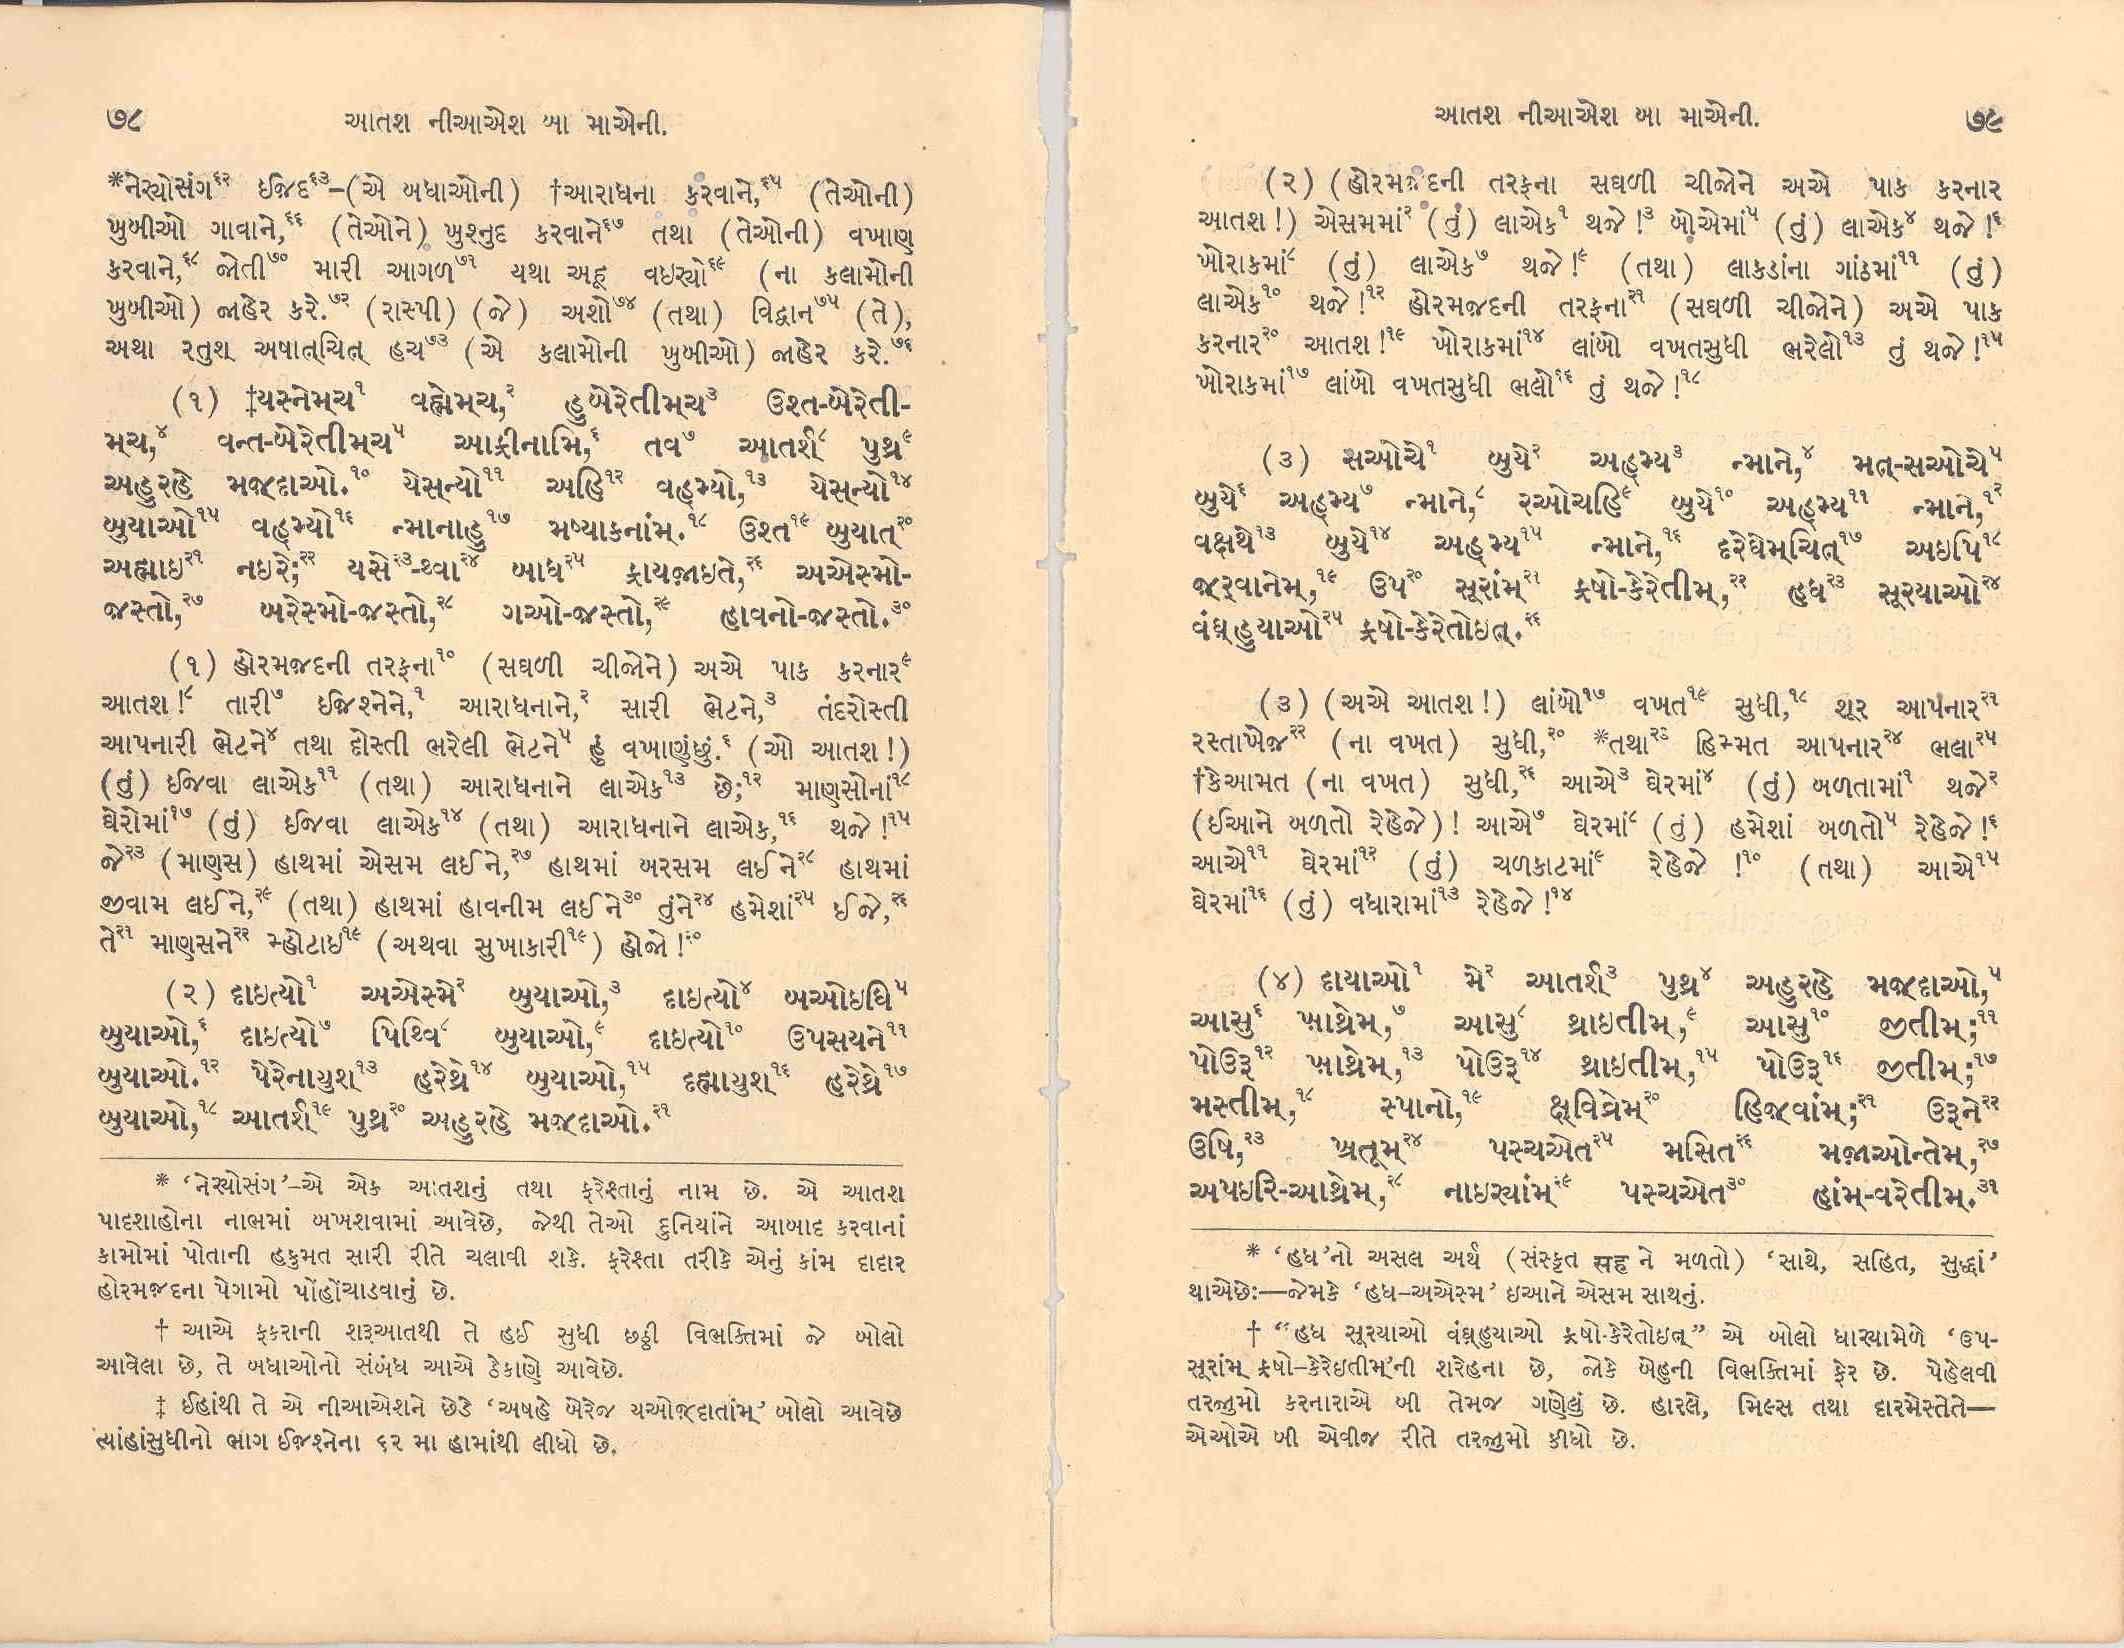 ૭૮
આતશ નીઆએશ બા માએની.
*નેરયોસંગ૬૨ ઈજદ૬૩–(એ બધાઓની) †આરાધના કરવાને,૬૫ (તેઓની)
ખુબીઓ ગાવાને,૬૬ (તેઓને) ખુશ્નુદ કરવાને૬૭ તથા (તેઓની) વખાણ
કરવાને,૬૮ જોતી૭૦ મારી આગળ૭૧ યથા અહૂ વઇરયો૬૯ (ના કલામોની
ખુબીઓ) જાહેર કરે.૭૨ (રાસ્પી) (જે) અશો૭૪ (તથા) વિદ્વાન૭૫ (તે),
અથા રતુશ્ અષાત્‌ચિત્‌ હચ૭૩ (એ કલામોની ખુબીઓ) જાહેર કરે.૭૬
(૧) ‡યસ્નેમ્‌ચ૧ વહ્મેમ્‌ચ,૨ હુબેરેતીમ્‌ચ૩ ઉશ્ત-બેરેતી-
મ્‌ચ,૪ વન્ત-બેરેતીમ્‌ચ૫ આફ્રીનામિ,૬ તવ૭ આતર્શ્૮ પુથ્ર૯
અહુરહે મજ઼્દાઓ.૧૦ યેસ્ન્યો૧૧ અહિ૧૨ વહ્મ્યો,૧૩ યેસ્ન્યો૧૪
બુયાઓ૧૫ વહ્મ્યો૧૬ ન્માનાહુ૧૭ મષ્યાકનાંમ્.૧૮ ઉશ્ત૧૯ બુયાત્૨૦
અહ્માઇ૨૧ નઇરે;૨૨ યસે૨૩-થ્વા૨૪ બાધ૨૫ ફ્રાયજ઼ાઇતે,૨૬ અએસ્મો-
જ઼સ્તો,૨૭ બરેસ્મો-જ઼સ્તો,૨૮ ગઓ-જ઼સ્તો,૨૯ હાવનો-જ઼સ્તો.૩૦
(૧) હોરમજ઼દની તરફના૧૦ (સઘળી ચીજોને) અએ પાક કરનાર૯
આતશ!૮ તારી૭ ઈજ઼શ્નેને,૧ આરાધનાને,૨ સારી ભેટને,૩ તંદરોસ્તી
આપનારી ભેટને૪ તથા દોસ્તી ભરેલી ભેટને૫ હું વખાણુંછું.૬ (ઓ આતશ!)
(તું) ઈજવા લાએક૧૧ (તથા) આરાધનાને લાએક૧૩ છે;૧૨ માણસોનાં૧૮
ઘેરોમાં૧૭ (તું) ઈજવા લાએક૧૪ (તથા) આરાધનાને લાએક,૧૬ થજે!૧૫
જે૨૩ (માણસ) હાથમાં એસમ લઈને,૨૭ હાથમાં બરસમ લઈને૨૮ હાથમાં
જીવામ લઈને,૨૯ (તથા) હાથમાં હાવનીમ લઈને૩૦ તુંને૨૪ હમેશાં૨૫ ઈજે,૨૬
તે૨૧ માણસને૨૨ મ્હોટાઇ૧૯ (અથવા સુખાકારી૧૯) હોજો!૨૦
(૨) દાઇત્યો૧ અએસ્મે૨ બુયાઓ,૩ દાઇત્યો૪ બઓઇધિ૫
બુયાઓ,૬ દાઇત્યો૭ પિથ્વિ૮ બુયાઓ,૯ દાઇત્યો૧૦ ઉપસયને૧૧
બુયાઓ.૧૨ પેરેનાયુશ્૧૩ હરેથ્રે૧૪ બુયાઓ,૧૫ દહ્માયુશ્૧૬ હરેથ્રે૧૭
બુયાઓ,૧૮ આતર્શ્૧૯ પુથ્ર૨૦ અહુરહે મજ઼્દાઓ.૨૧
* ‘નેરયોસંગ’–એ એક આતશનું તથા ફરેસ્તાનું નામ છે. એ આતશ
પાદશાહોના નાભમાં બખશવામાં આવેછે, જેથી તેઓ દુનિયાંને આબાદ કરવાનાં
કામોમાં પોતાની હકુમત સારી રીતે ચલાવી શકે. ફરેસ્તા તરીકે એનું કાંમ દાદાર
હોરમજ઼દના પેગામો પોંહોંચાડવાનું છે.
† આએ ફકરાની શરૂઆતથી તે હઈ સુધી છઠ્ઠી વિભક્તિમાં જે બોલો
આવેલા છે, તે બધાઓનો સંબંધ આએ ઠેકાણે આવેછે.
‡ ઈહાંથી તે એ નીઆએશને છેડે ‘અષહે બેરેજ યઓજ઼્દાતાંમ્’ બોલો આવેછે
ત્યાંહાંસુધીનો ભાગ ઈજ઼શ્નેના ૬૨ મા હામાંથી લીધો છે.
આતશ નીઆએશ બા માએની.
૭૯
(૨) (હોરમજ઼દની તરફના સઘળી ચીજોને અએ પાક કરનાર
આતશ!) એસમમાં૨ (તું) લાએક૧ થજે!૩ બોએમાં૫ (તું) લાએક૪ થજે!૬
ખોરાકમાં૮ (તું) લાએક૭ થજે!૯ (તથા) લાકડાંના ગાંઠમાં૧૧ (તું)
લાએક૧૦ થજે!૧૨ હોરમજ઼દની તરફના૨૧ (સઘળી ચીજોને) અએ પાક
કરનાર૨૦ આતશ!૧૯ ખોરાકમાં૧૪ લાંબો વખતસુધી ભરેલો૧૩ તું થજે!૧૫
ખોરાકમાં૧૭ લાંબો વખતસુધી ભલો૧૬ તું થજે!૧૮
(૩) સઓચે૧ બુયે૨ અહ્મ્ય૩ ન્માને,૪ મત્‌-સઓચે૫
બુયે૬ અહ્મ્ય૭ ન્માને,૮ રઓચહિ૯ બુયે૧૦ અહ્મ્ય૧૧ ન્માને,૧૨
વક્ષથે૧૩ બુયે૧૪ અહ્મ્ય૧૫ ન્માને,૧૬ દરેઘેમ્‌ચિત્‌૧૭ અઇપિ૧૮
જ઼્રવાનેમ્,૧૯ ઉપ૨૦ સૂરાંમ્૨૧ ફ્રષો-કેરેતીમ્,૨૨ હધ૨૩ સૂરયાઓ૨૪
વંઘ્હુયાઓ૨૫ ફ્રષો-કેરેતોઇત્‌.૨૬
(૩) (અએ આતશ!) લાંબો૧૭ વખત૧૯ સુધી,૧૮ શૂર આપનાર૨૧
રસ્તાખેજ઼૨૨ (ના વખત) સુધી,૨૦ *તથા૨૩ હિમ્મત આપનાર૨૪ ભલા૨૫
†કેઆમત (ના વખત) સુધી,૨૬ આએ૩ ઘેરમાં૪ (તું) બળતામાં૧ થજે૨
(ઈઆને બળતો રેહેજે)! આએ૭ ઘેરમાં૮ (તું) હમેશાં બળતો૫ રેહેજે!૬
આએ૧૧ ઘેરમાં૧૨ (તું) ચળકાટમાં૯ રેહેજે !૧૦ (તથા) આએ૧૫
ઘેરમાં૧૬ (તું) વધારામાં૧૩ રેહેજે!૧૪
(૪) દાયાઓ૧ મે૨ આતર્શ્૩ પુથ્ર૪ અહુરહે મજ઼્દાઓ,૫
આસુ૬ ખ઼ાથ્રેમ્,૭ આસુ૮ થ્રાઇતીમ્,૯ આસુ૧૦ જીતીમ્;૧૧
પોઉરૂ૧૨ ખ઼ાથ્રેમ્,૧૩ પોઉરૂ૧૪ થ્રાઇતીમ્,૧૫ પોઉરૂ૧૬ જીતીમ્;૧૭
મસ્તીમ્,૧૮ સ્પાનો,૧૯ ક્ષ્વિવ્રેમ્૨૦ હિજ઼્વાંમ્;૨૧ ઉરૂને૨૨
ઉષિ,૨૩ ખ્રતૂમ્૨૪ પસ્ચએત૨૫ મસિત૨૬ મજ઼ાઓન્તેમ્,૨૭
અપઇરિ-આથ્રેમ્,૨૮ નાઇરયાંમ્૨૯ પસ્ચએત૩૦ હાંમ્-વરેતીમ્.૩૧
* ‘હધ’નો અસલ અર્થ (સંસ્કૃત सह ને મળતો) ‘સાથે, સહિત, સુદ્ધાં’
થાએછેઃ—જેમકે ‘હધ–અએસ્મ’ ઇઆને એસમ સાથનું.
† “હધ સૂરયાઓ વંઘ્હુયાઓ ફ્રષો-કેરેતોઇત્‌” એ બોલો ધારયામેળે ‘ઉપ-
સૂરાંમ્ ફ્રષો–કેરેઇતીમ્’ની શરેહના છે, જોકે બેહુની વિભક્તિમાં ફેર છે. પેહેલવી
તરજુમો કરનારાએ બી તેમજ ગણેલું છે. હારલે, મિલ્સ તથા દારમેસ્તેતે—
એઓએ બી એવીજ રીતે તરજુમો કીધો છે.